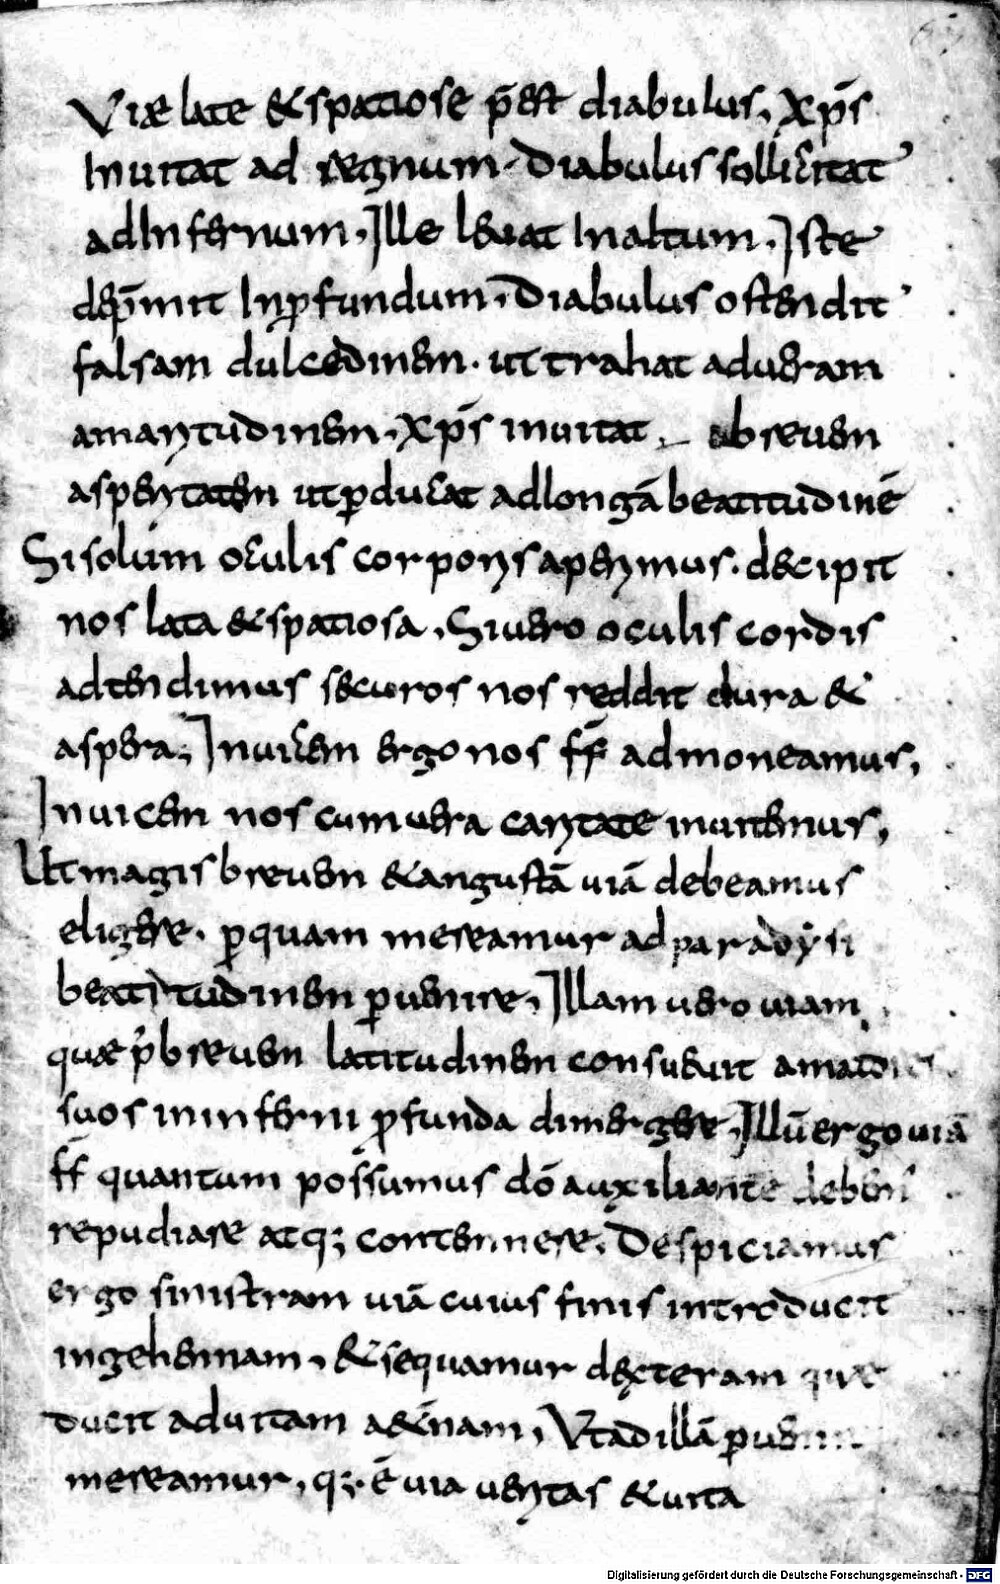 Viae late &spatiose p̄est diabulus, Xp̄s
Inuitat ad regnum. Diabulus sollicitat
adInfernum, Ille leuat Inaltum, Iste
dep̄mit Inꝓfundum, Diabulus ostendit
falsam dulcedinem. ut trahat adueram
amaritudinem, Xp̄s inuitat, abreuem
asperitatem utꝑducat adlongā beatitudinē
Si solum oculis corporis aperimus. decipit
nos lata &spatiosa, Siuero oculis cordis
adtendimus securos nos reddit dura &
aspera; Inuicem ergo nos fr̄ admoneamus,
Inuicem nos cumuera caritate inuitemus,
Ut magis breuem &angustā uiā debeamus
eligere. ꝑquam mereamur ad paradysi
beatitudinem ꝑuenire, Illam uero uiam,
quae p̄breuem latitudinem consueuit amatores
suos in inferni ꝓfunda dimergere, Illū ergo uiā
fr̄ quantum possumus dō auxiliante debem̄
repudiare atq; contemnere, Despiciamus
ergo sinistram uiā cuius finis introducit
ingehennam, &sequamur dexteram quae
ducit aduitam aet̄nam, Vtad illā ꝑuenire
mereamur, q; ē uia ueritas &uita
Digitalisierung gefördert durch die Deutsche Forschungsgemeinschaft - DFG